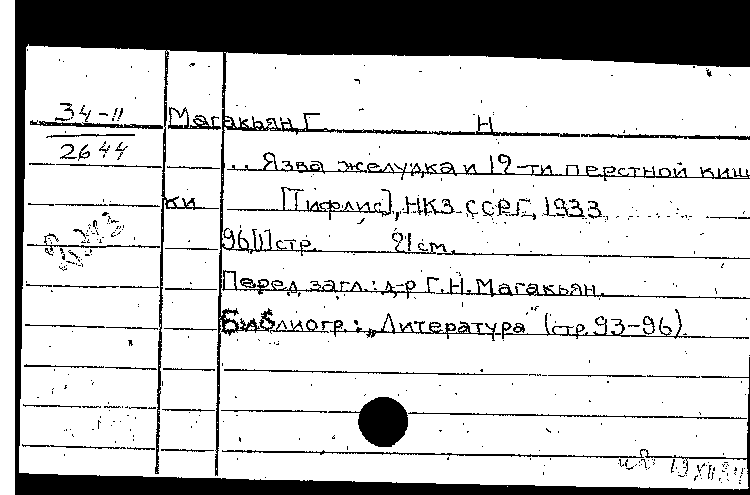 34-II
2644
Магакьян, Г. Н
.. Язва желудка и 12-ти перстной киш
ки [Тифлис], НКЗ ССРГ, 1933
96[1] стр. 21 см.
Перед загл.: д-р Г.Н. Магакьян.
Библиогр.: „Литература" (стр. 93-96)